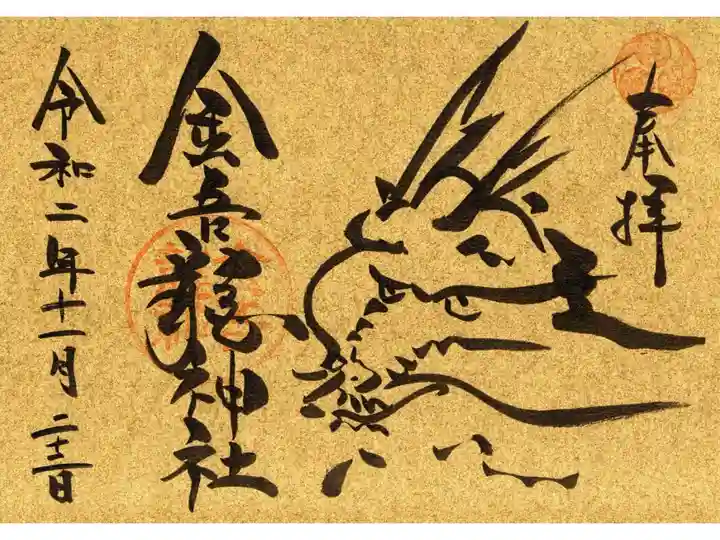 奉拝
金吾龍神社
令和二年十一月二十二日